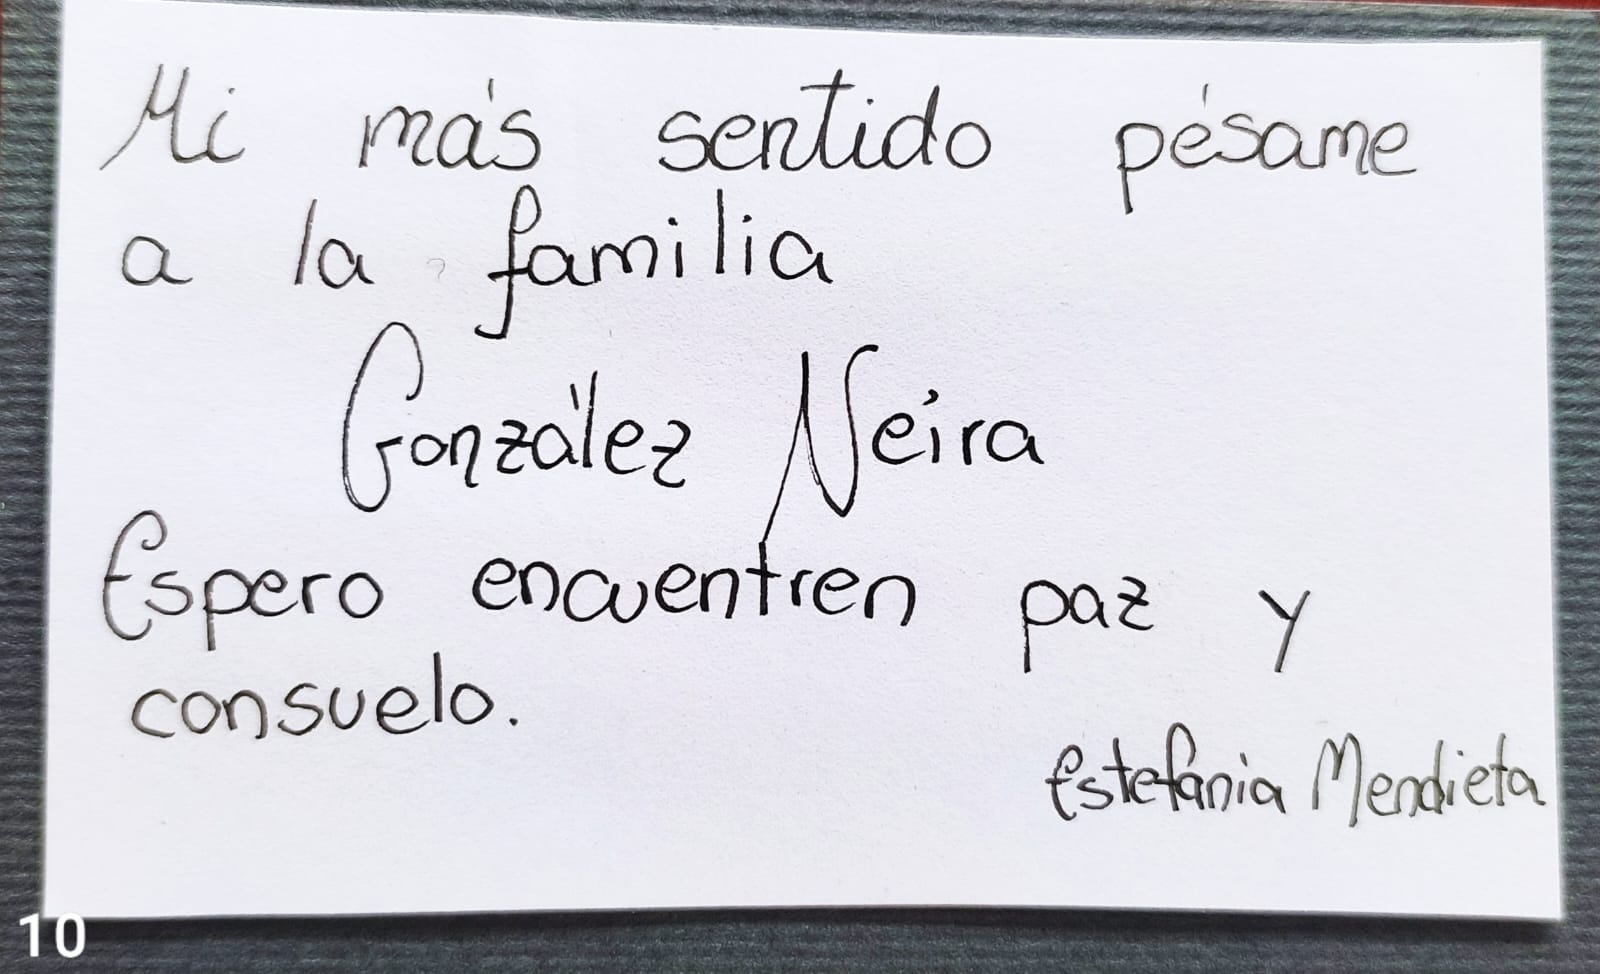 Mi más sentido pésame
a la familia
González Neira
Espero encuentren paz y
consuelo.
Estefánia Mendieta
10